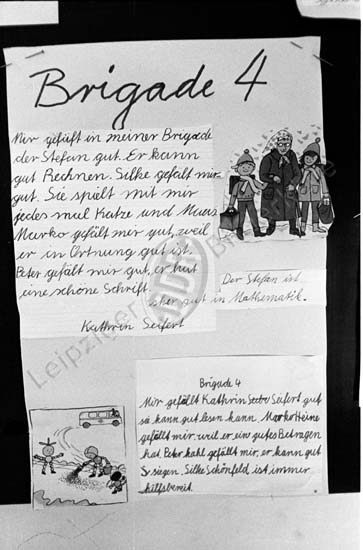 Brigade 4
Mir gefällt in meiner Brigade
der Stefan gut. Er kann
gut Rechnen. Silke gefällt mir
gut. Sie spielt mit mir
jedes mal Katze und Maus
Marko gefällt mir gut, weil
er in Ortnung gut ist.
Peter gefält mir gut, er hat
eine schöne Schrift.
Kathrin Seifert
Der Stefan ist
sher gut in Mathematik.
Brigade 4
Mir gefällt Kathrin Seifert gut
sie kann gut lesen kann. Marko Heine
gefällt mir weil er ein gutes Betragen
hat. Peter kahl gefällt mir, er kann gut
siegen. Silke Schönfeld ist immer
hilfsbereit.
Leipzig